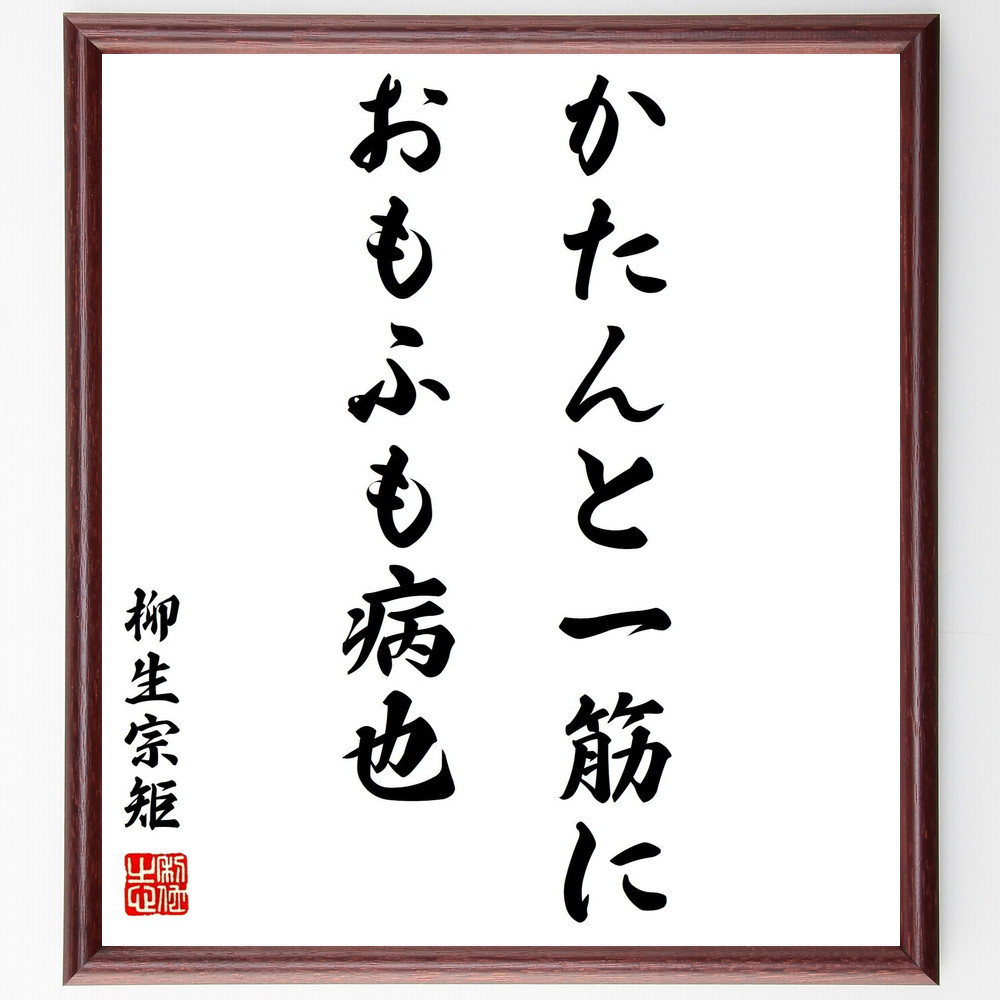 かたんと一筋に
おもふも病也
柳生宗矩